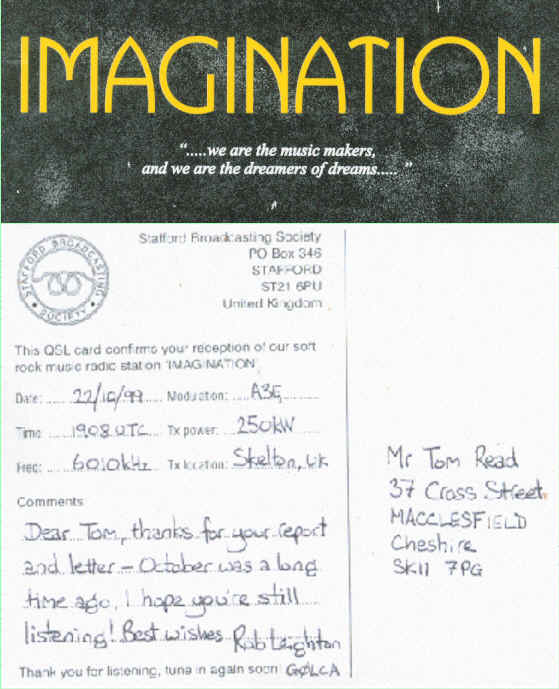 IMAGINATION
".....we are the music makers,
and we are the dreamers of dreams..... "
STAFFORD BROADCASTING
SOCIETY
Stafford Broadcasting Society
PO Box 346
STAFFORD
ST21 6PU
United Kingdom
This QSL card confirms your reception of our soft
rock music radio station 'IMAGINATION'.
Date: 22/10/99 Modulation: A3E
Time: 1908 UTC Tx power: 250kW
Freq: 6010kHz Tx location: Skelton, UK
Comments
Dear Tom, thanks for your report
and letter – October was a long
time ago, I hope you're still
listening! Best wishes Rob Leighton
Thank you for listening, tune in again soon GØLCA
Mr Tom Read
37 Cross Street
MACCLESFIELD
Cheshire
SK11 7PG